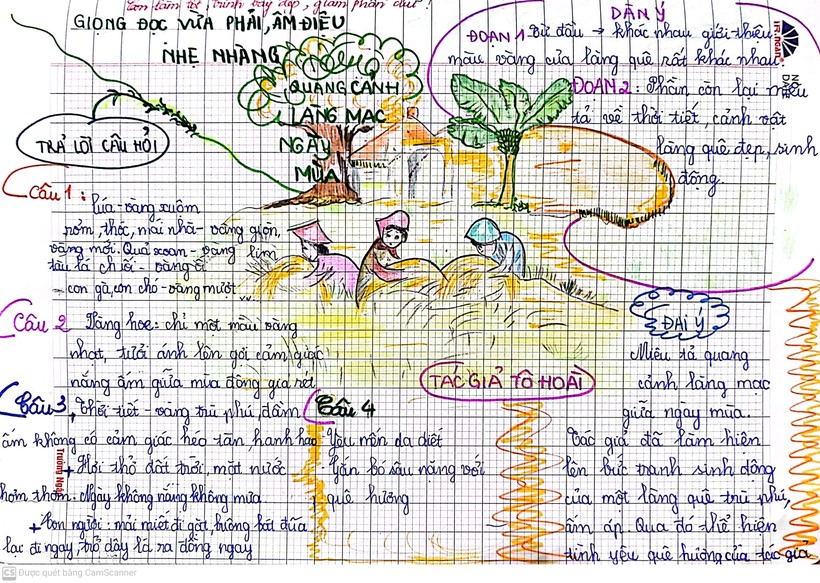 Con làm tốt, trình bày đẹp, giảm phần
GIỌNG ĐỌC VỪA PHẢI, ÂM ĐIỆU
NHẸ NHÀNG
QUANG CẢNH
LÀNG MẠC
NGÀY
MÙA
DÀN Ý
ĐOẠN 1: Từ đầu → khác nhau giới thiệu
màu vàng của làng quê rất khác nhau.
ĐOẠN 2: Phần còn lại miêu
tả về thời tiết, cảnh vật
làng quê đẹp, sinh
động.
TRẢ LỜI CÂU HỎI
Câu 1: lúa-vàng xuộm
rơm, thóc, mái nhà-vàng giòn,
vàng mới. Quả xoan-vàng lịm
tàu lá chuối-vàng ối
con gà, con chó-vàng mượt
Câu 2 Vàng hoe: chỉ một màu vàng
nhạt, tươi ánh lên gợi cảm giác
nắng ấm giữa mùa đông giá rét
Câu 3 + Thời tiết-vàng trù phú, đầm
ấm không có cảm giác héo tàn hanh hao
+ Hơi thở đất trời, mặt nước
thơm thơm. Ngày không nắng không mưa.
+ Con người: mải miết đi gặt, buông bát đũa
lại đi ngay, trở dậy là ra đồng ngay
Câu 4
Yêu mến da diết
Gắn bó sâu nặng với
quê hương
TÁC GIẢ TÔ HOÀI
ĐẠI Ý
Miêu tả quang
cảnh làng mạc
giữa ngày mùa.
Tác giả đã làm hiện
lên bức tranh sinh động
của một làng quê trù phú,
ấm áp. Qua đó thể hiện
tình yêu quê hương của tác giả
Trường Ngân
CS Được quét bằng CamScanner